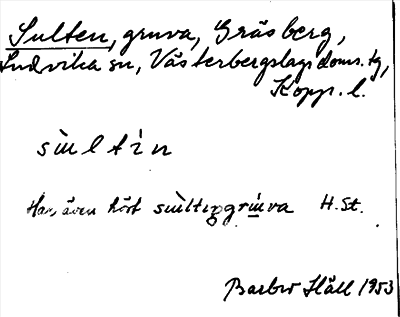 Sulten, gruva, Gräsberg,
Ludvika sn, Västerbergslags doms. tg,
Kopp. l.
sùltìn
Har även hört sùltiŋgrùva H. St.
Barbro Häll 1953